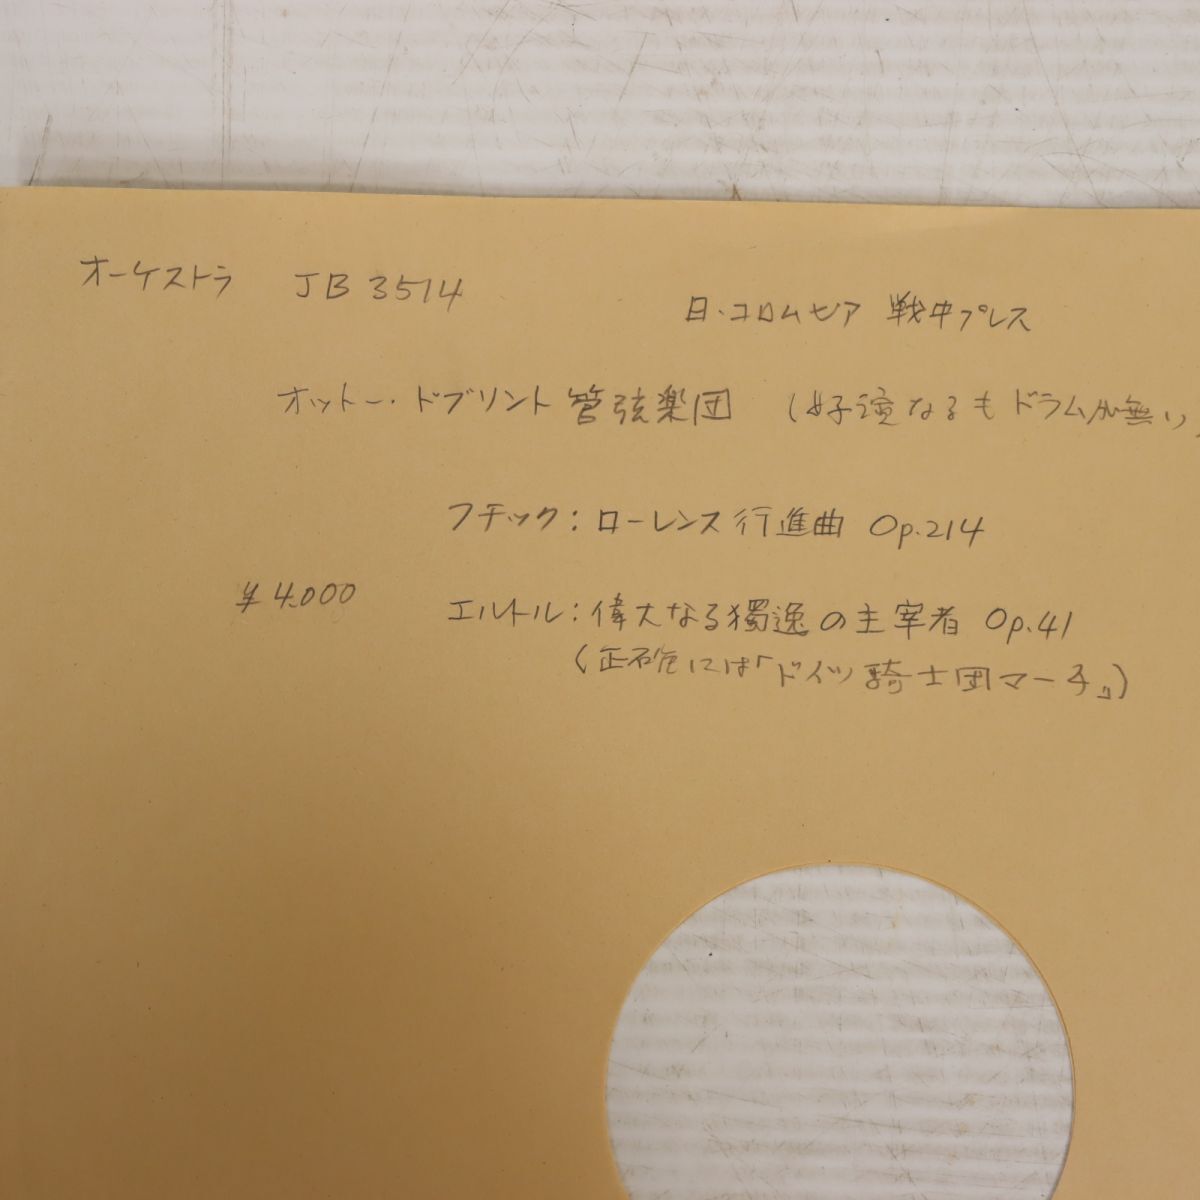 オーケストラ JB3514
日・コロムビア 戦中プレス
オットー・ドブリント管弦楽団 (好演なるもドラムが無い)
フチック:ローレンス行進曲 Op.214
¥4.000
エルトル:偉大なる獨逸の主宰者 Op.41
(正確には「ドイツ騎士団マーチ」)